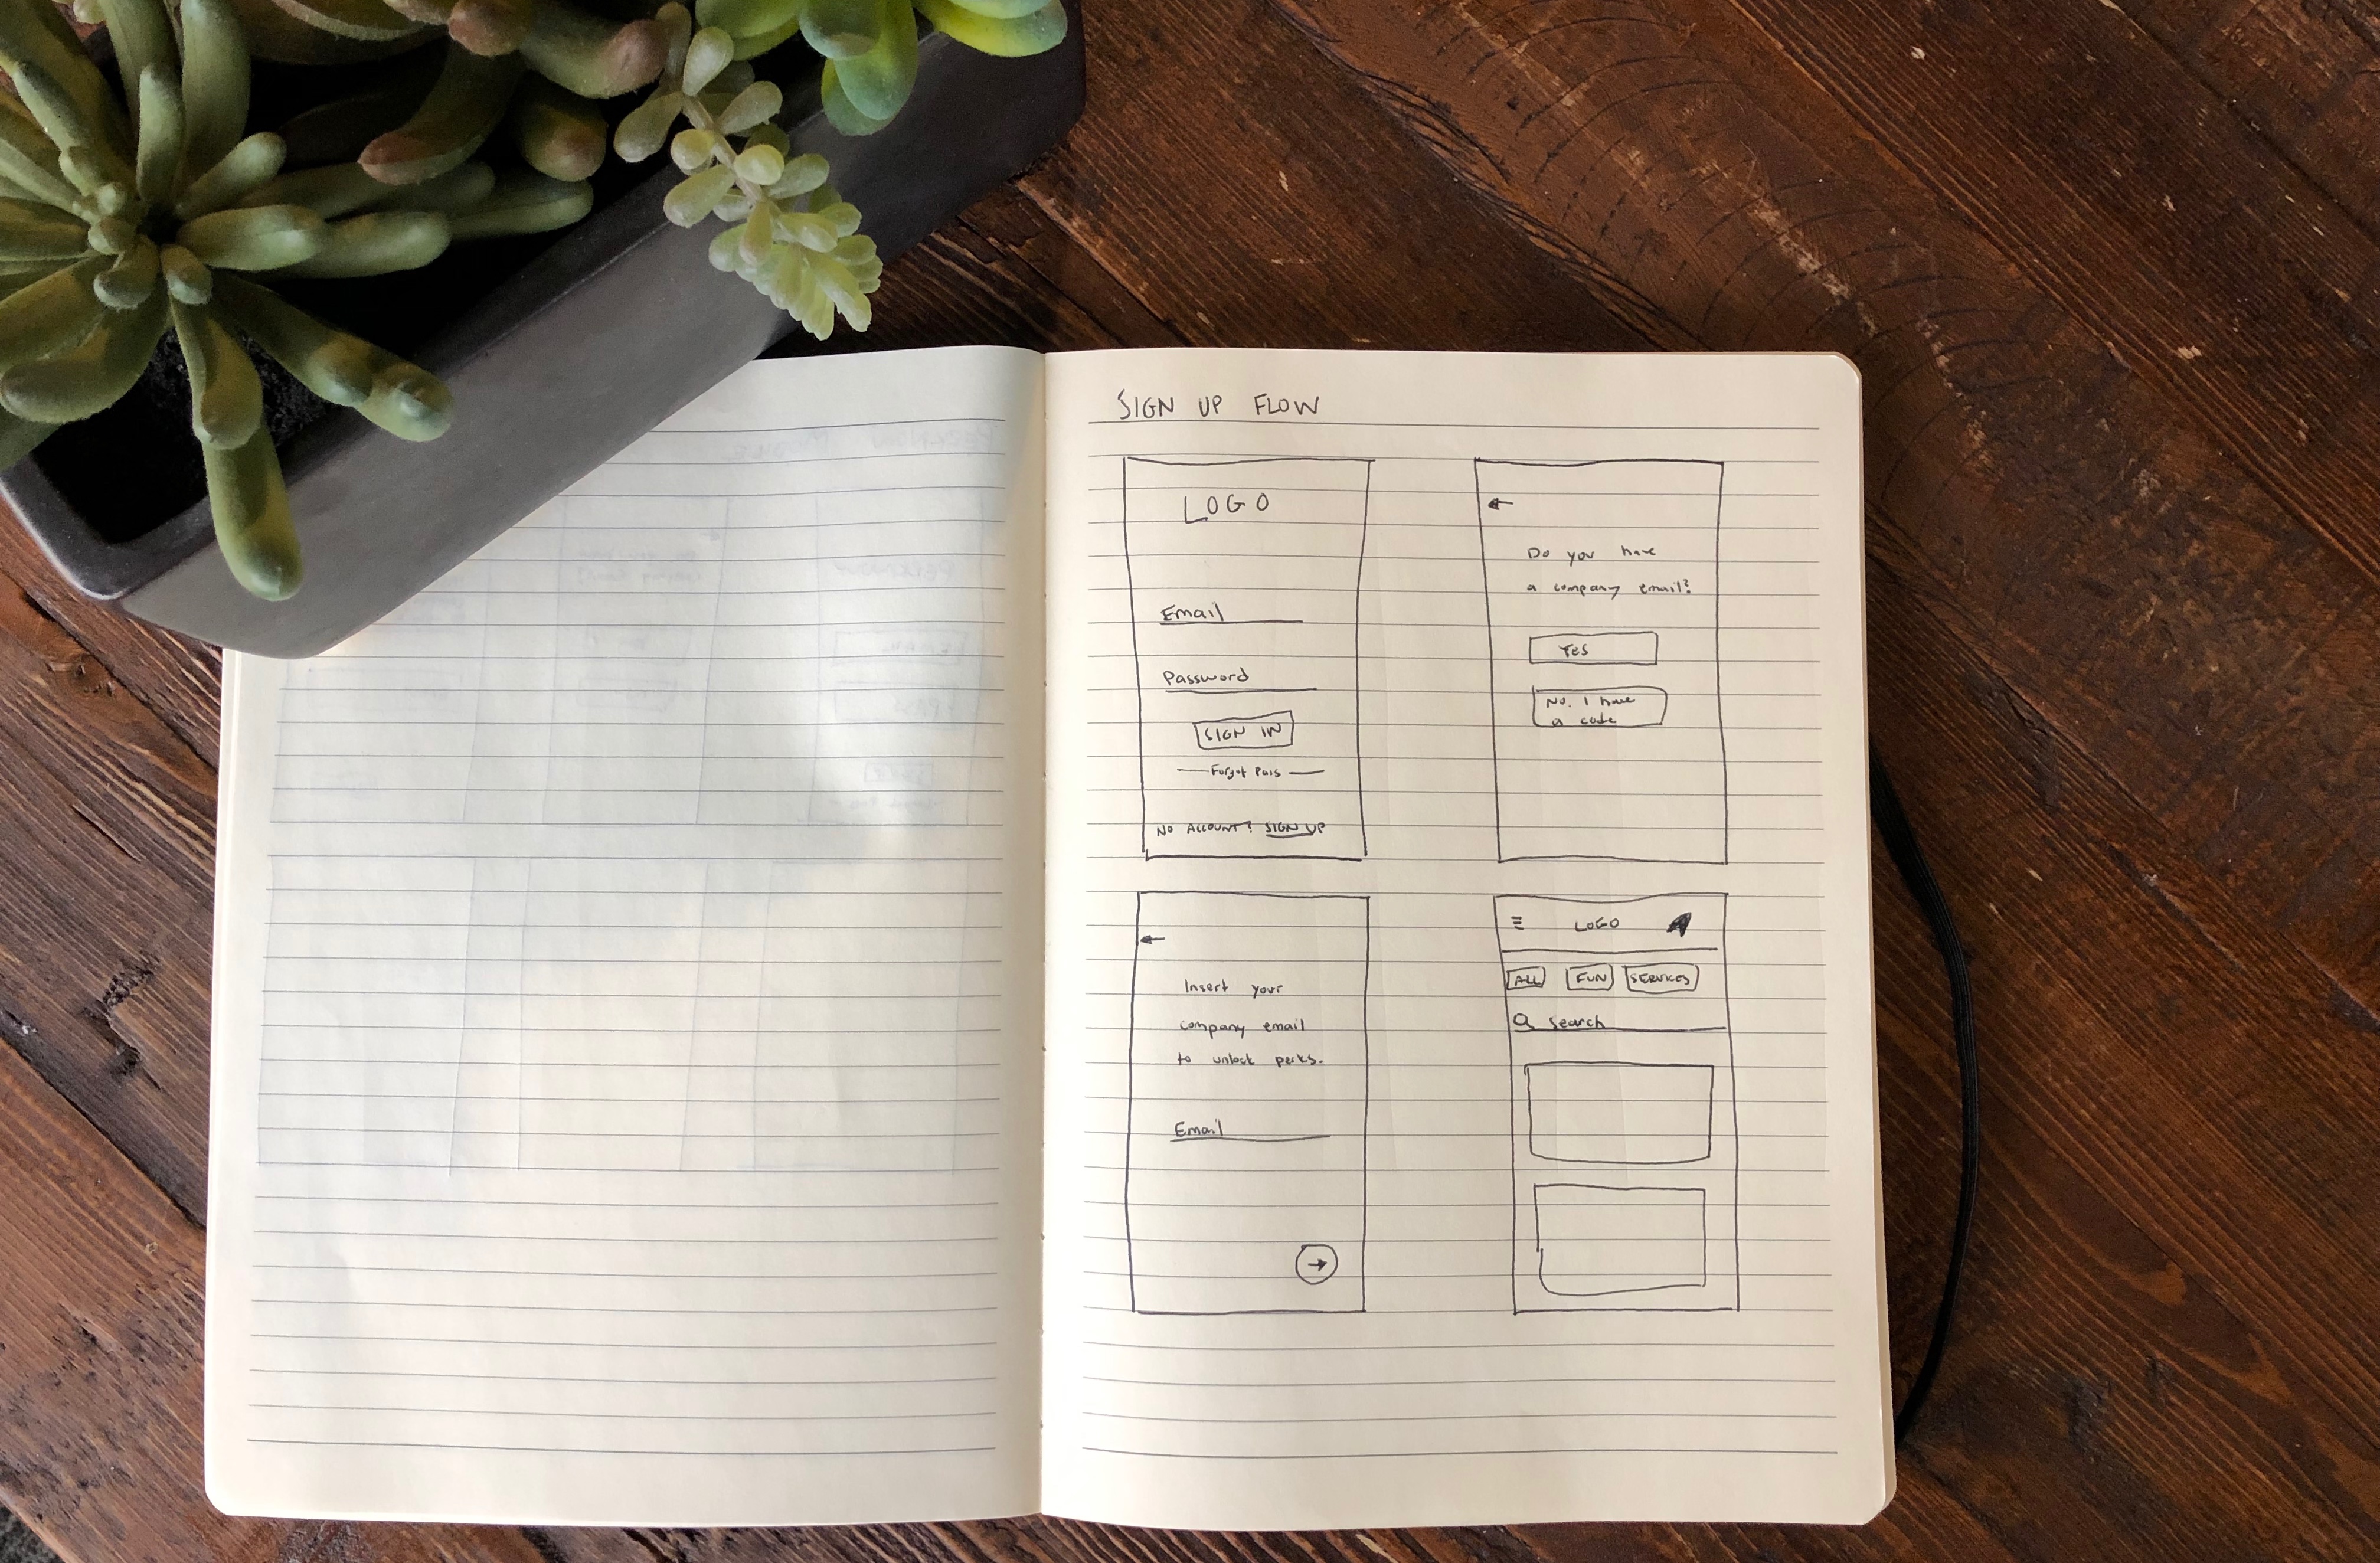 SIGN UP FLOW
LOGO
Email
Password
SIGN IN
Forgot Pass
NO ACCOUNT? SIGN UP
Do you have
a company email?
Yes
No. I have
a code
Insert your
company email
to unlock perks.
Email
LOGO
ALL FUN SERVICES
Search